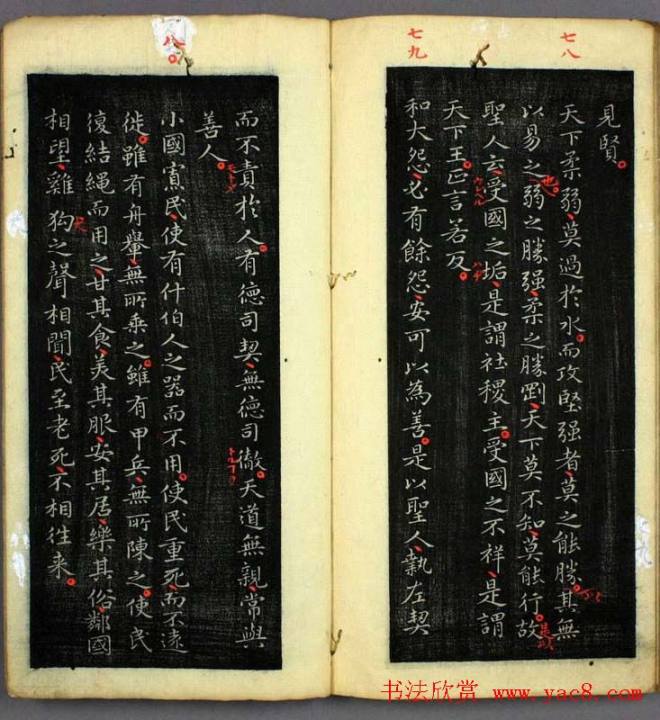 七八
七九
見賢
天下柔弱莫過於水而攻堅强者莫之能勝其無
以易之弱之勝强柔之勝剛天下莫不知莫能行故
聖人云受國之垢是謂社稷主受國之不祥是謂
天下王正言若反
和大怨必有餘怨安可以為善是以聖人執左契
八
而不責於人有德司契無德司徹天道無親常與
善人
小國寡民使有什伯人之器而不用使民重死而不遠
徙雖有舟轝無所乘之雖有甲兵無所陳之使民
復結繩而用之甘其食美其服安其居樂其俗鄰國
相望雞狗之聲相聞民至老死不相往来
也
犬
书法欣赏 www.yac8.com